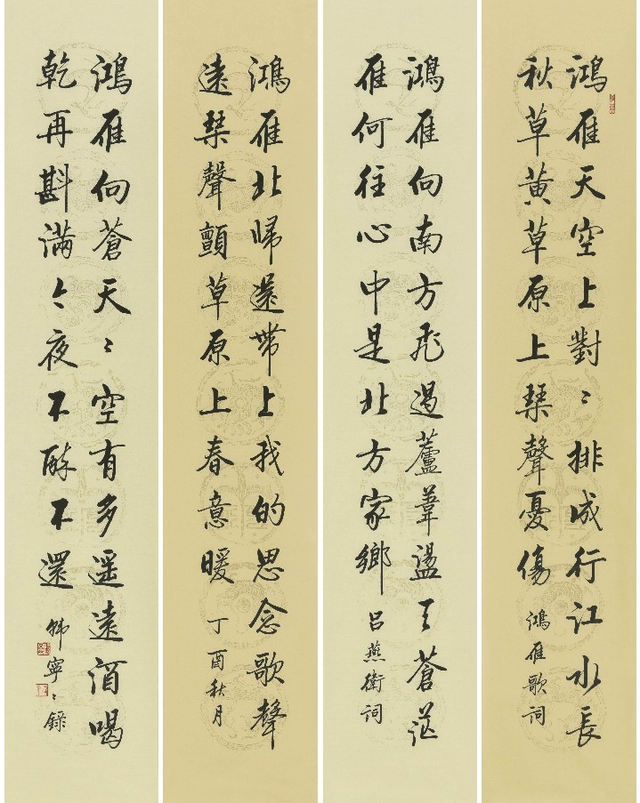 鴻雁天空上對〻排成行江水長
秋草黃草原上琴聲憂傷
鴻雁歌詞
鴻雁向南方飛過蘆葦盪天蒼茫
雁何往心中是北方家鄉
呂燕衛詞
鴻雁北歸還帶上我的思念歌聲
遠琴聲顫草原上春意暖
丁酉秋月
鴻雁向蒼天〻空有多遥遠酒喝
乾再斟滿今夜不醉不還
韩寧〻錄